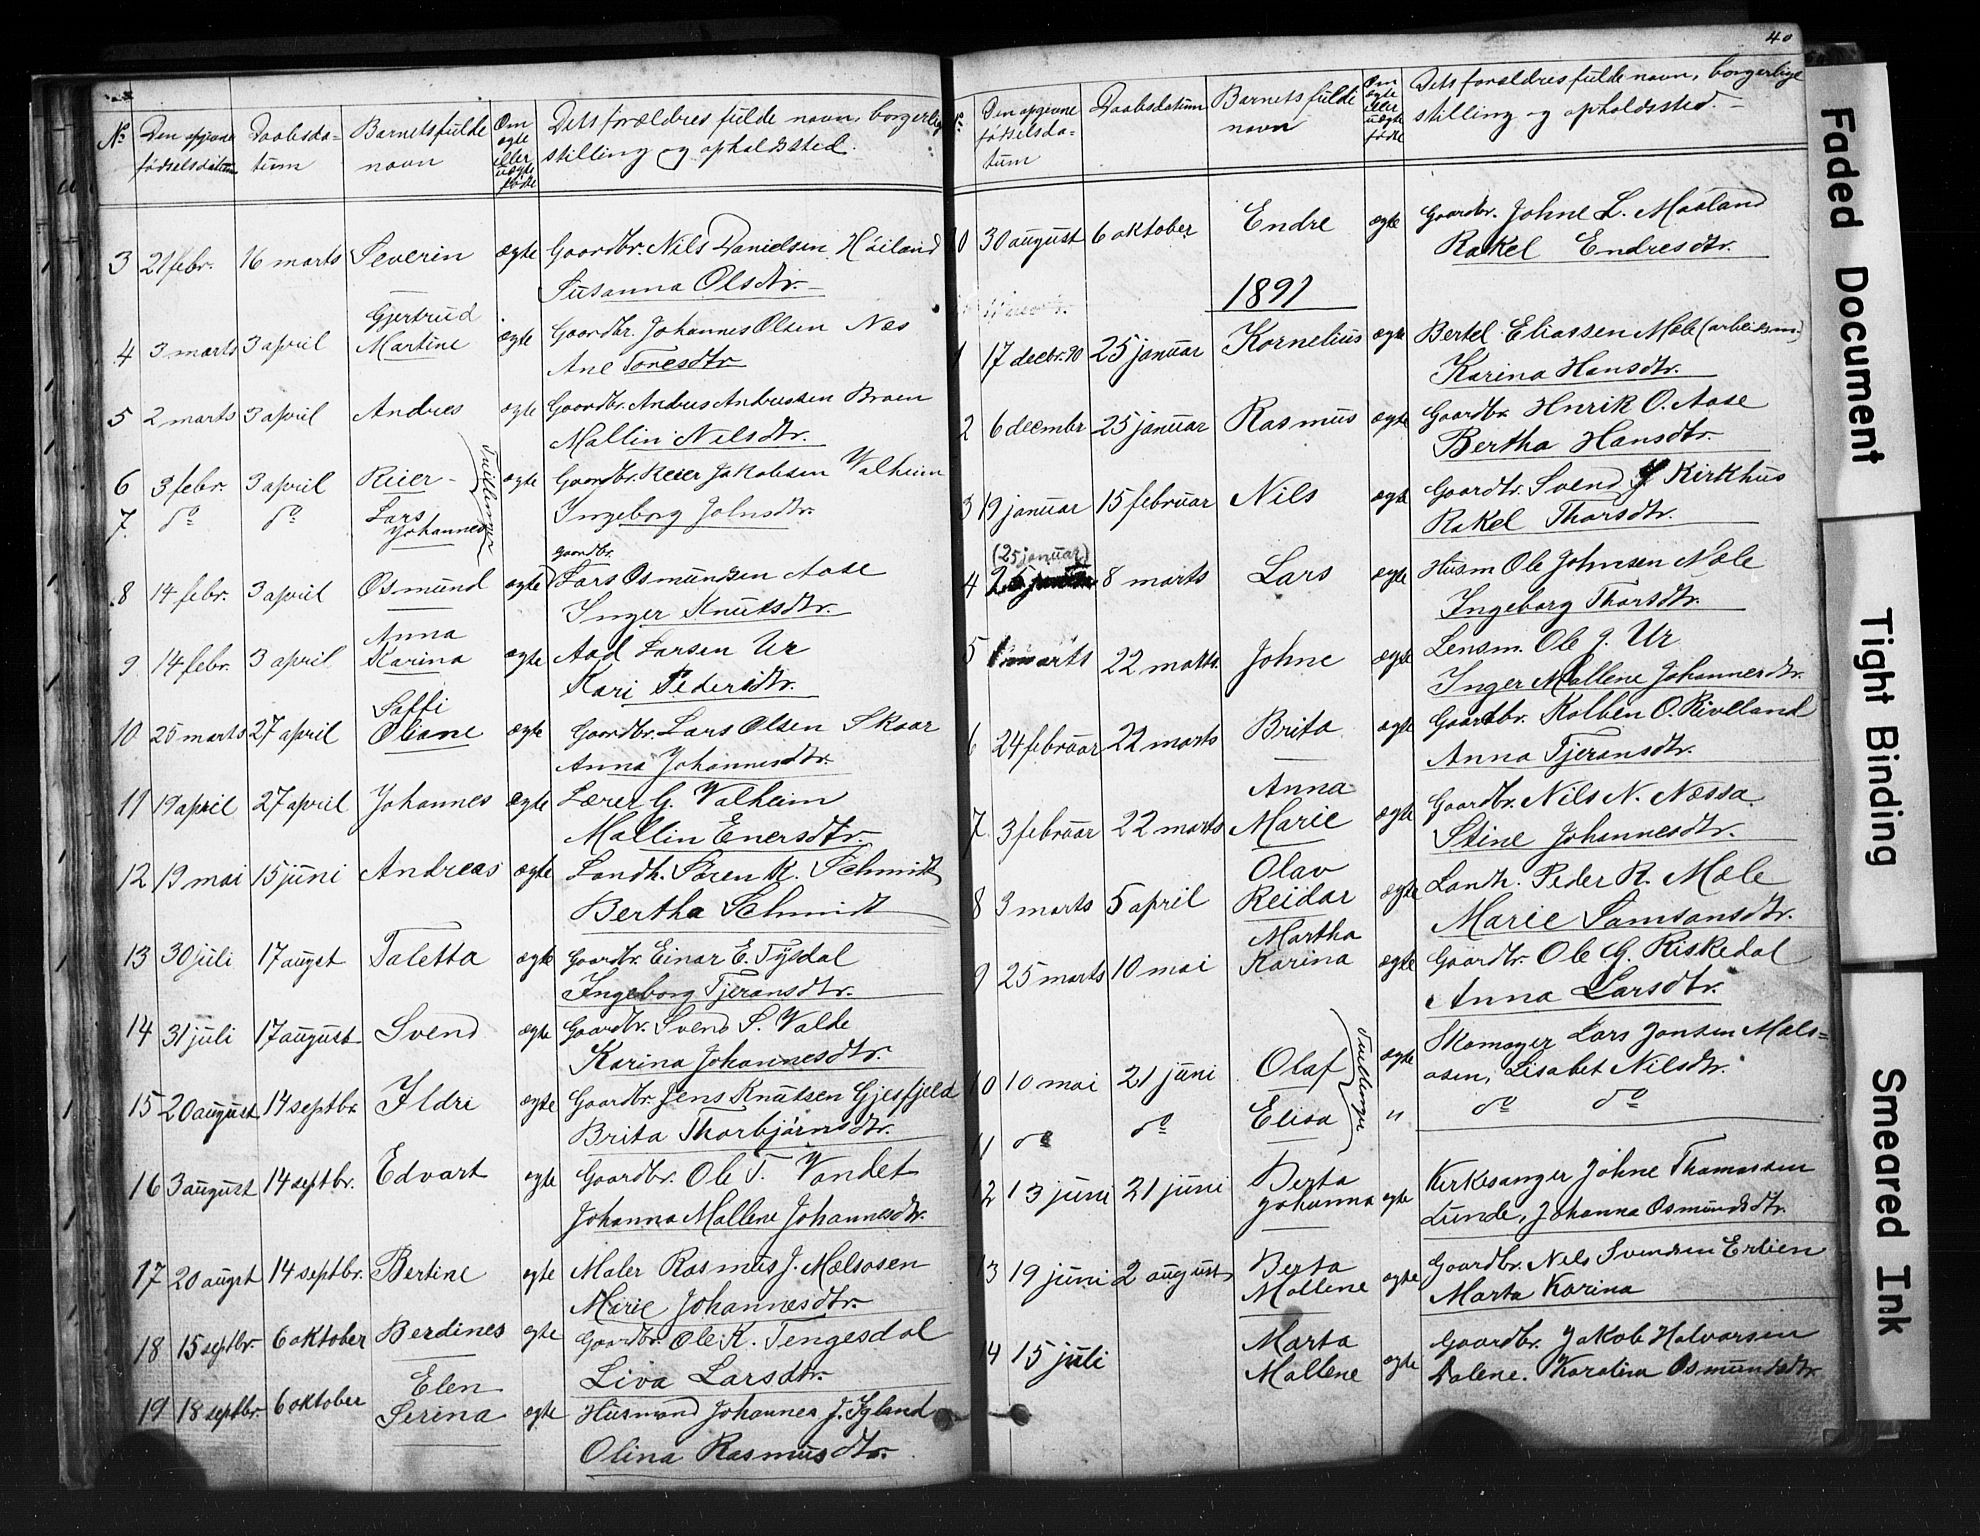 No Den opgivne fødselsdatum Daabsdatum Barnets fulde navn Om ægte eller uægte født Dets forældres fulde navn, borgerlig stilling og opholdssted.
3 21 febr. 16 marts Severin ægte Gaardbr. Nils Danielsen Høiland
Susanna Olsdtr.
Gjertrud
4 3 marts 3 april Martine ægte Gaardbr. Johannes Olsen Næs
Ane Tonesdtr
5 2 marts 3 april Andres ægte Gaardbr. Andres Andressen Braen
Mallin Nilsdtr.
6 3 febr. 3 april Reier ægte Gaardbr. Reier Jakobsen Valheim
7. do do Lars Johannes Tvillinger Ingeborg Johnsdtr.
gaardbr.
8 14 febr. 3 april Osmund ægte Lars Osmundsen Aase
Inger Knutsdtr.
Anna
9 14 febr. 3 april Karina ægte Aad Larsen Ur
Kari Pedersdtr.
Saffi
10 25 marts 27 april Oliane ægte Gaardbr. Lars Olsen Skaar
Anna Johannesdtr.
11 19 april 27 april Johannes ægte Lærer G. Valheim
Mallin Enersdtr.
12 19 mai 15 juni Andreas ægte Landh. Søren R. Schmidt
Bertha Schmidt
13 30 juli 17 augst Taletta ægte Gaardbr. Einar E. Tysdal
Ingeborg Tjeransdtr.
14 31 juli 17 august Svend ægte Gaardbr. Svend S. Valde
Karina Johannesdtr.
15 20 august 14 septbr. Ildri ægte Gaardbr. Jens Knutsen Gjesfjeld
Brita Thorbjørnsdtr.
16 3 august 14 septbr. Edvart ægte Gaardbr. Ole T. Vandet
Johanna Mallene Johannesdtr.
17 20 augst 14 septbr. Bertine ægte Maler Rasmus J. Mælsosen
Marie Johannesdtr.
18 15 septbr. 6 oktober Berdines ægte Gaardbr. Ole K. Tengesdal
Liva Larsdtr.
Elen
19 18 septbr. 6 oktober Serina ægte Husmand Johannes J. Tyland
Olina Rasmusdtr.
40
No. Den opgivne fødselsdatum Daabsdatum Barnets fulde navn Om ægte eller uægte fødte Dets forældres fulde navn, borgerlige stilling og opholdssted.
0 30 august 6 oktober Endre ægte Gaardbr. Johne L. Maaland
Rakel Endresdtr.
1891
1 17 decbr. 90 25 januar Kornelius ægte Bertel Eliassen Mæle (arbeidsm.)
Karina Hansdtr.
2 6 decembr 25 januar Rasmus ægte Gaardbr. Hnrik O. Aase
Bertha Hansdtr.
3 19 januar 15 februar Nils ægte Gaardbr. Svend J Kirkhus
Rakel Thorsdtr.
(25 januar)
4 8 marts Lars ægte Husm Ole Johnsen Mæle
Ingeborg Thorsdtr.
5 1 marts 22 marts Johne ægte Lensm. Ole J. Ur
Inger Mallene Johannesdtr.
6 24 februar 22 marts Brita ægte Gaardbr. Kolben O. Riveland
Anna Tjeransdtr.
Anna
7. 3 februar 22 marts Marie ægte Gaardbr. Nils N. Næssa
Stine Johannesdtr.
Olav
8 3 marts 5 april Reidar ægte Landh. Peder R. Mæle
Marie Samsonsdtr.
Martha
9 25 marts 10 mai Karina ægte Gaardbr. Ole G. Riskedal
Anna Larsdtr.
10 10 mai 21 juni Olaf Tvillinger ægte Skomager Lars Jonsen Mæls=
osen, Lisabet Nilsdtr.
11 do do Elisa " do do
12 13 juni 21 juni Berta Johanna ægte Kirkesanger Johne Thomassen
Lunde, Johanna Osmundsdtr.
13 19 juni 2 august Berta Mallene ægte Gaardbr. Nils Svendsen Erlien
Marta Karina
14 15 juli Marta Mallene ægte Gaardbr. Jakob Halvorsen
Dalene. Karolina Osmundsdtr.
Faded Document
Tight Binding
Smeared Ink